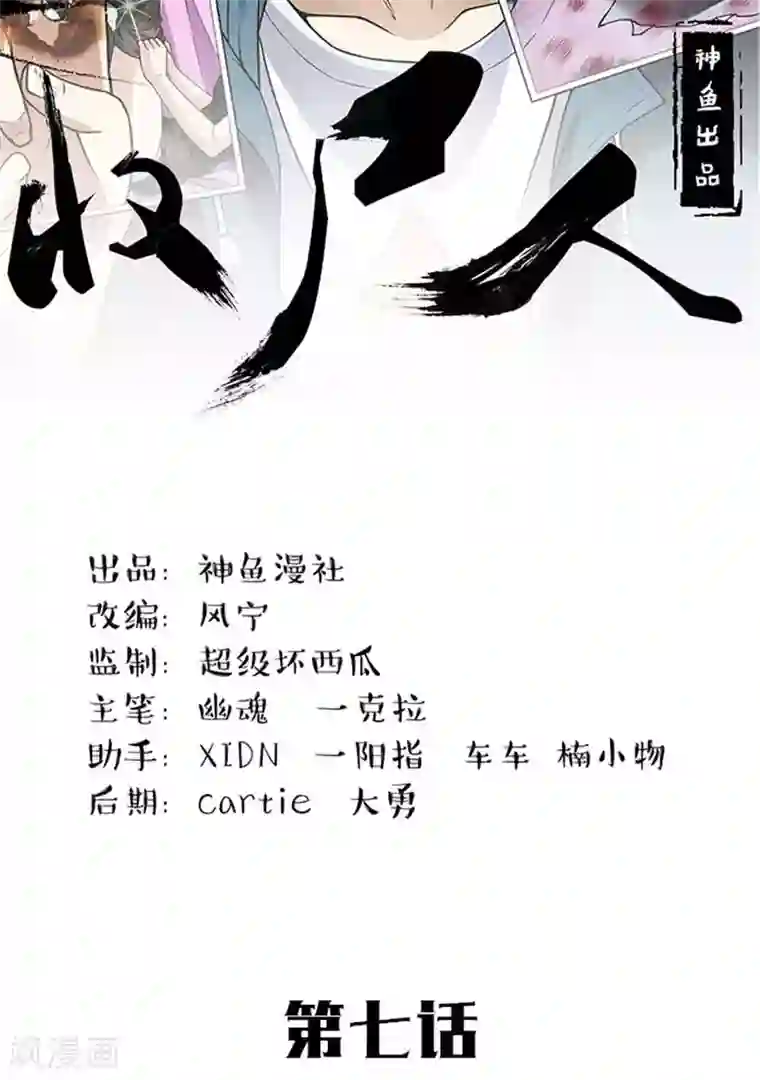 神鱼出品
收尸人
出品: 神鱼漫社
改编: 风宁
监制: 超级坏西瓜
主笔: 幽魂 一克拉
助手: XIDN 一阳指 车车 楠小物
后期: cartie 大勇
第七话
飒漫画